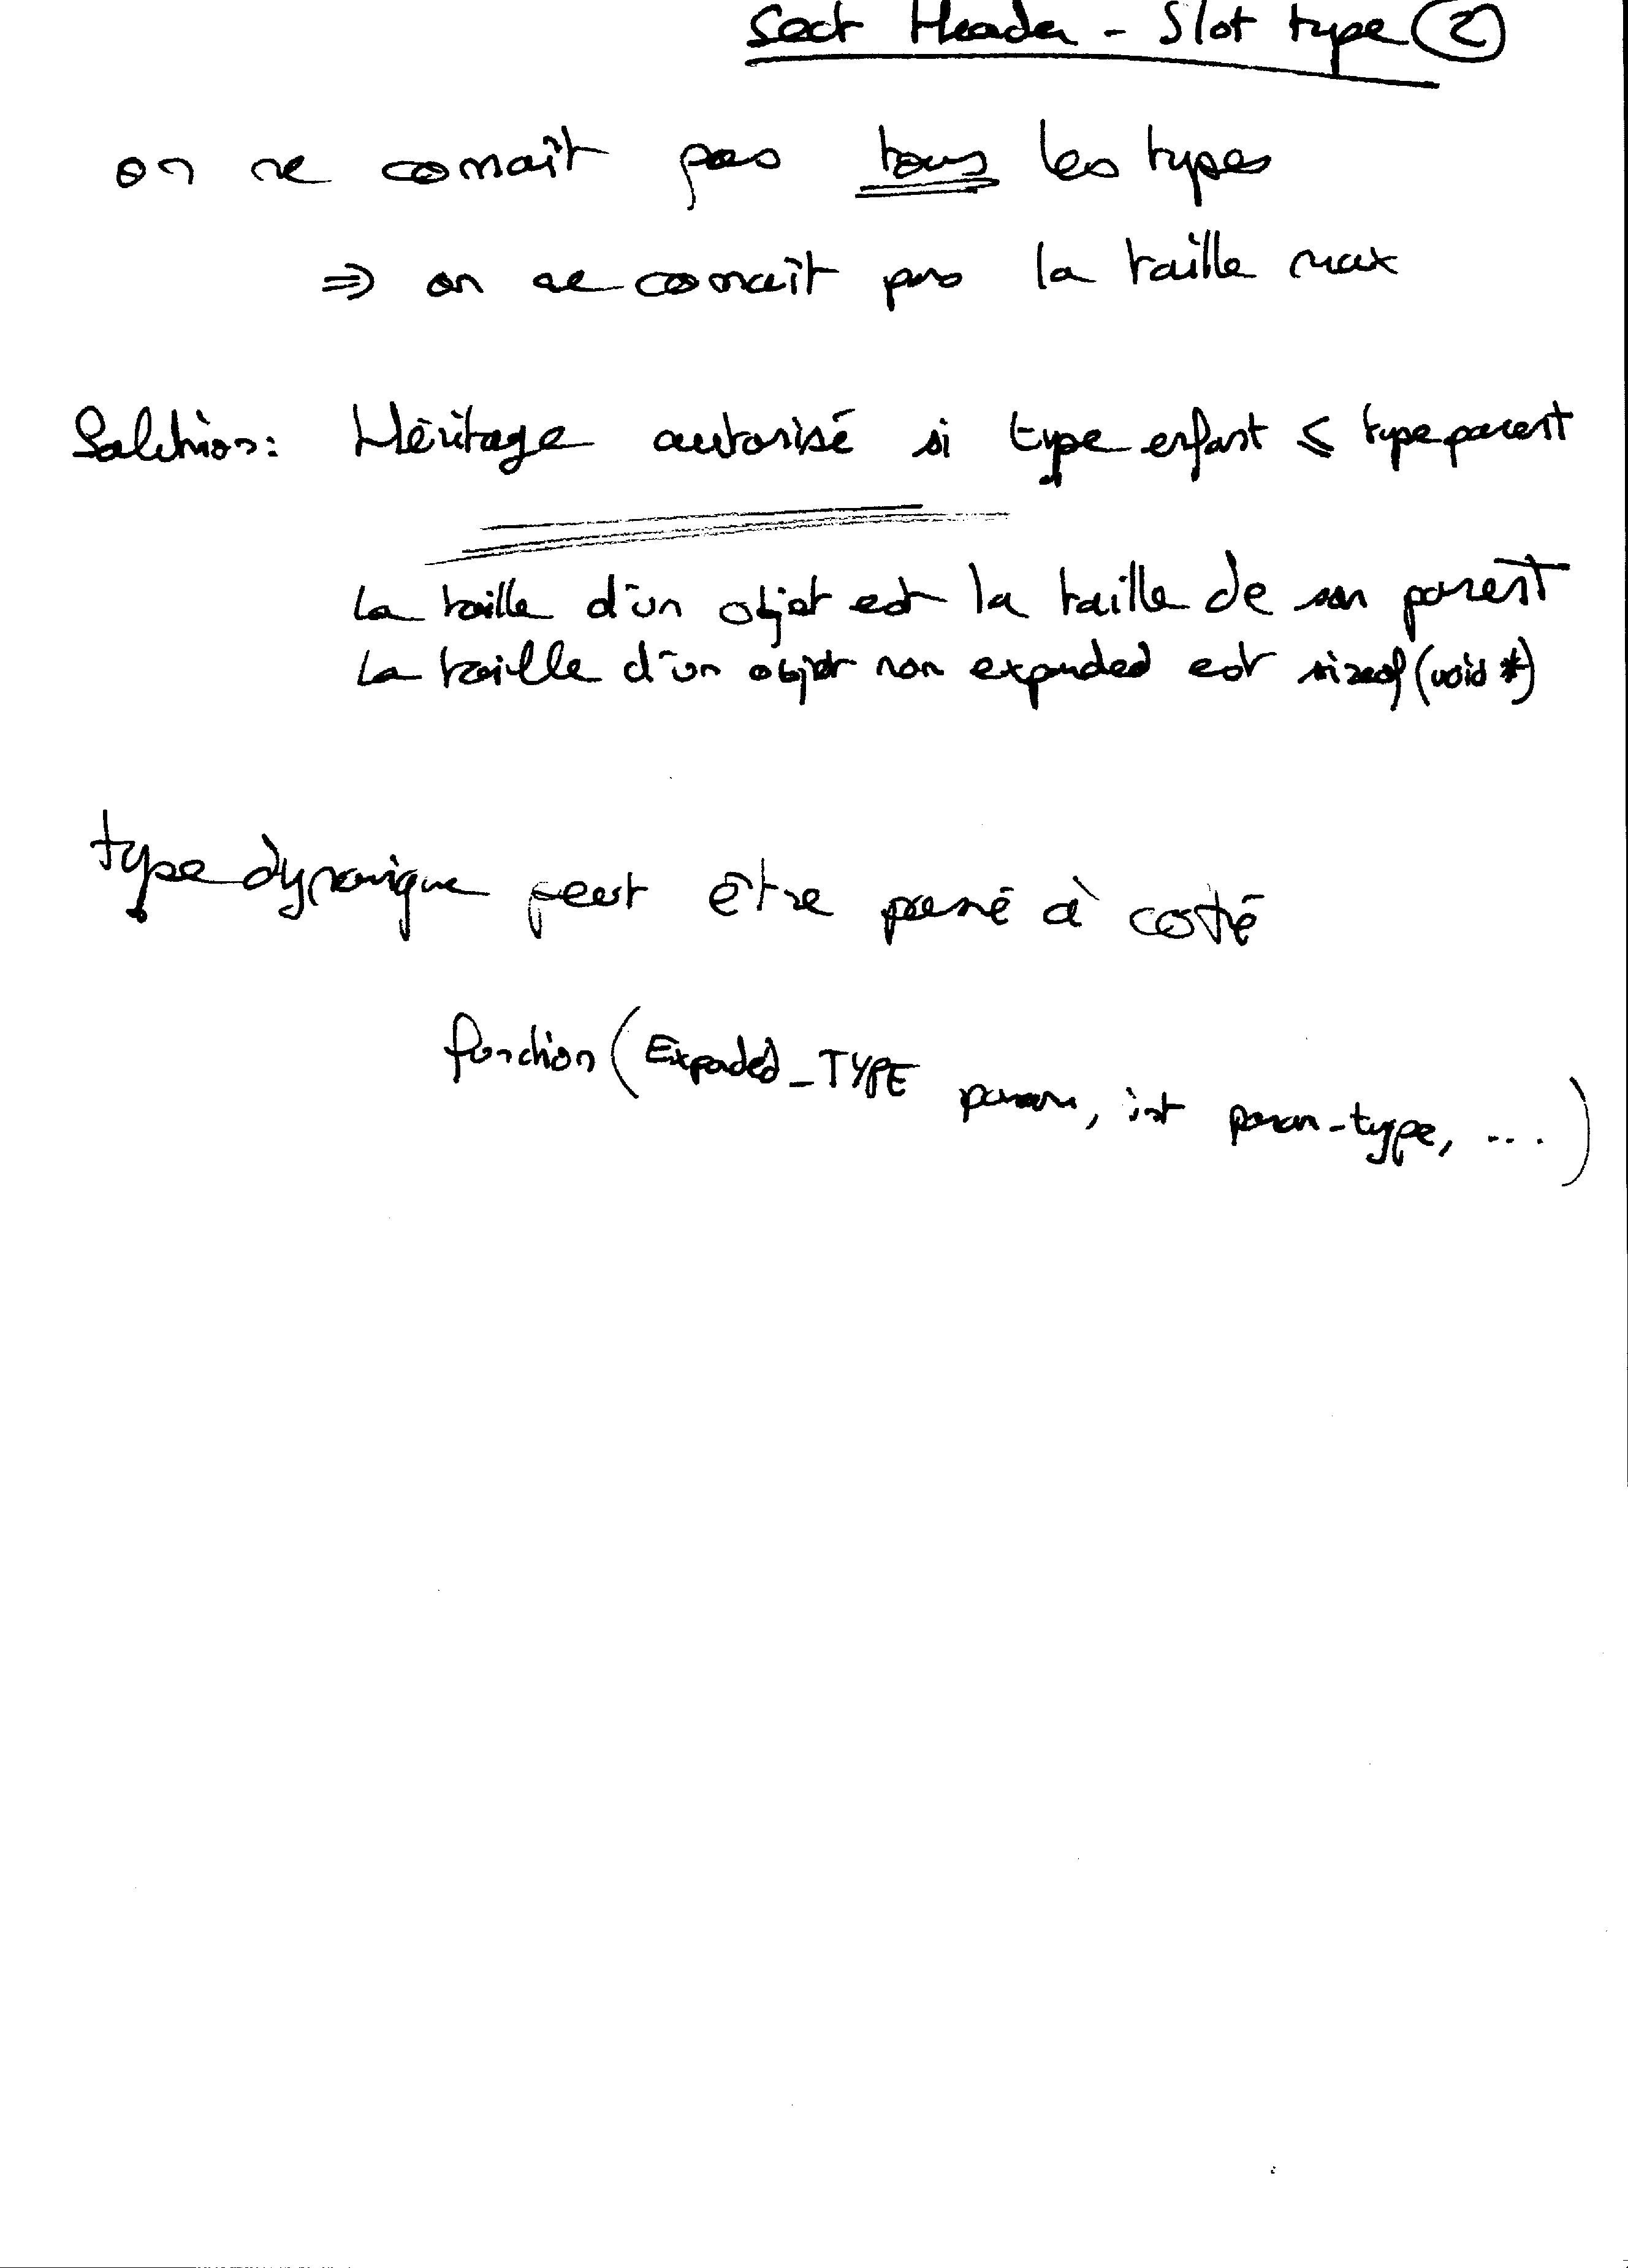 Sect Header - Slot type (2)
on ne connaît pas tous les types
⇒ on ne connaît pas la taille max
Solution: Héritage autorisé si type enfant ≤ type parent
La taille d'un objet est la taille de son parent
La taille d'un objet non expanded est sizeof(void *)
type dynamique peut être passé à coté
fonction (Expanded_TYPE param, int param-type, ....)